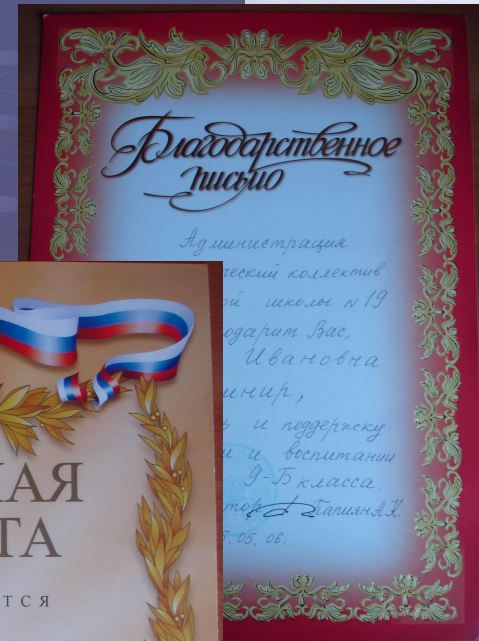 Благодарственное
письмо
Администрация
ческий коллектив
ой школы №19
одарит Вас,
Ивановна
нир,
ь и поддержку
и и воспитании
9-Б класса.
тор Папиян А.К.
.05.06.
КАЯ
ТА
ТСЯ